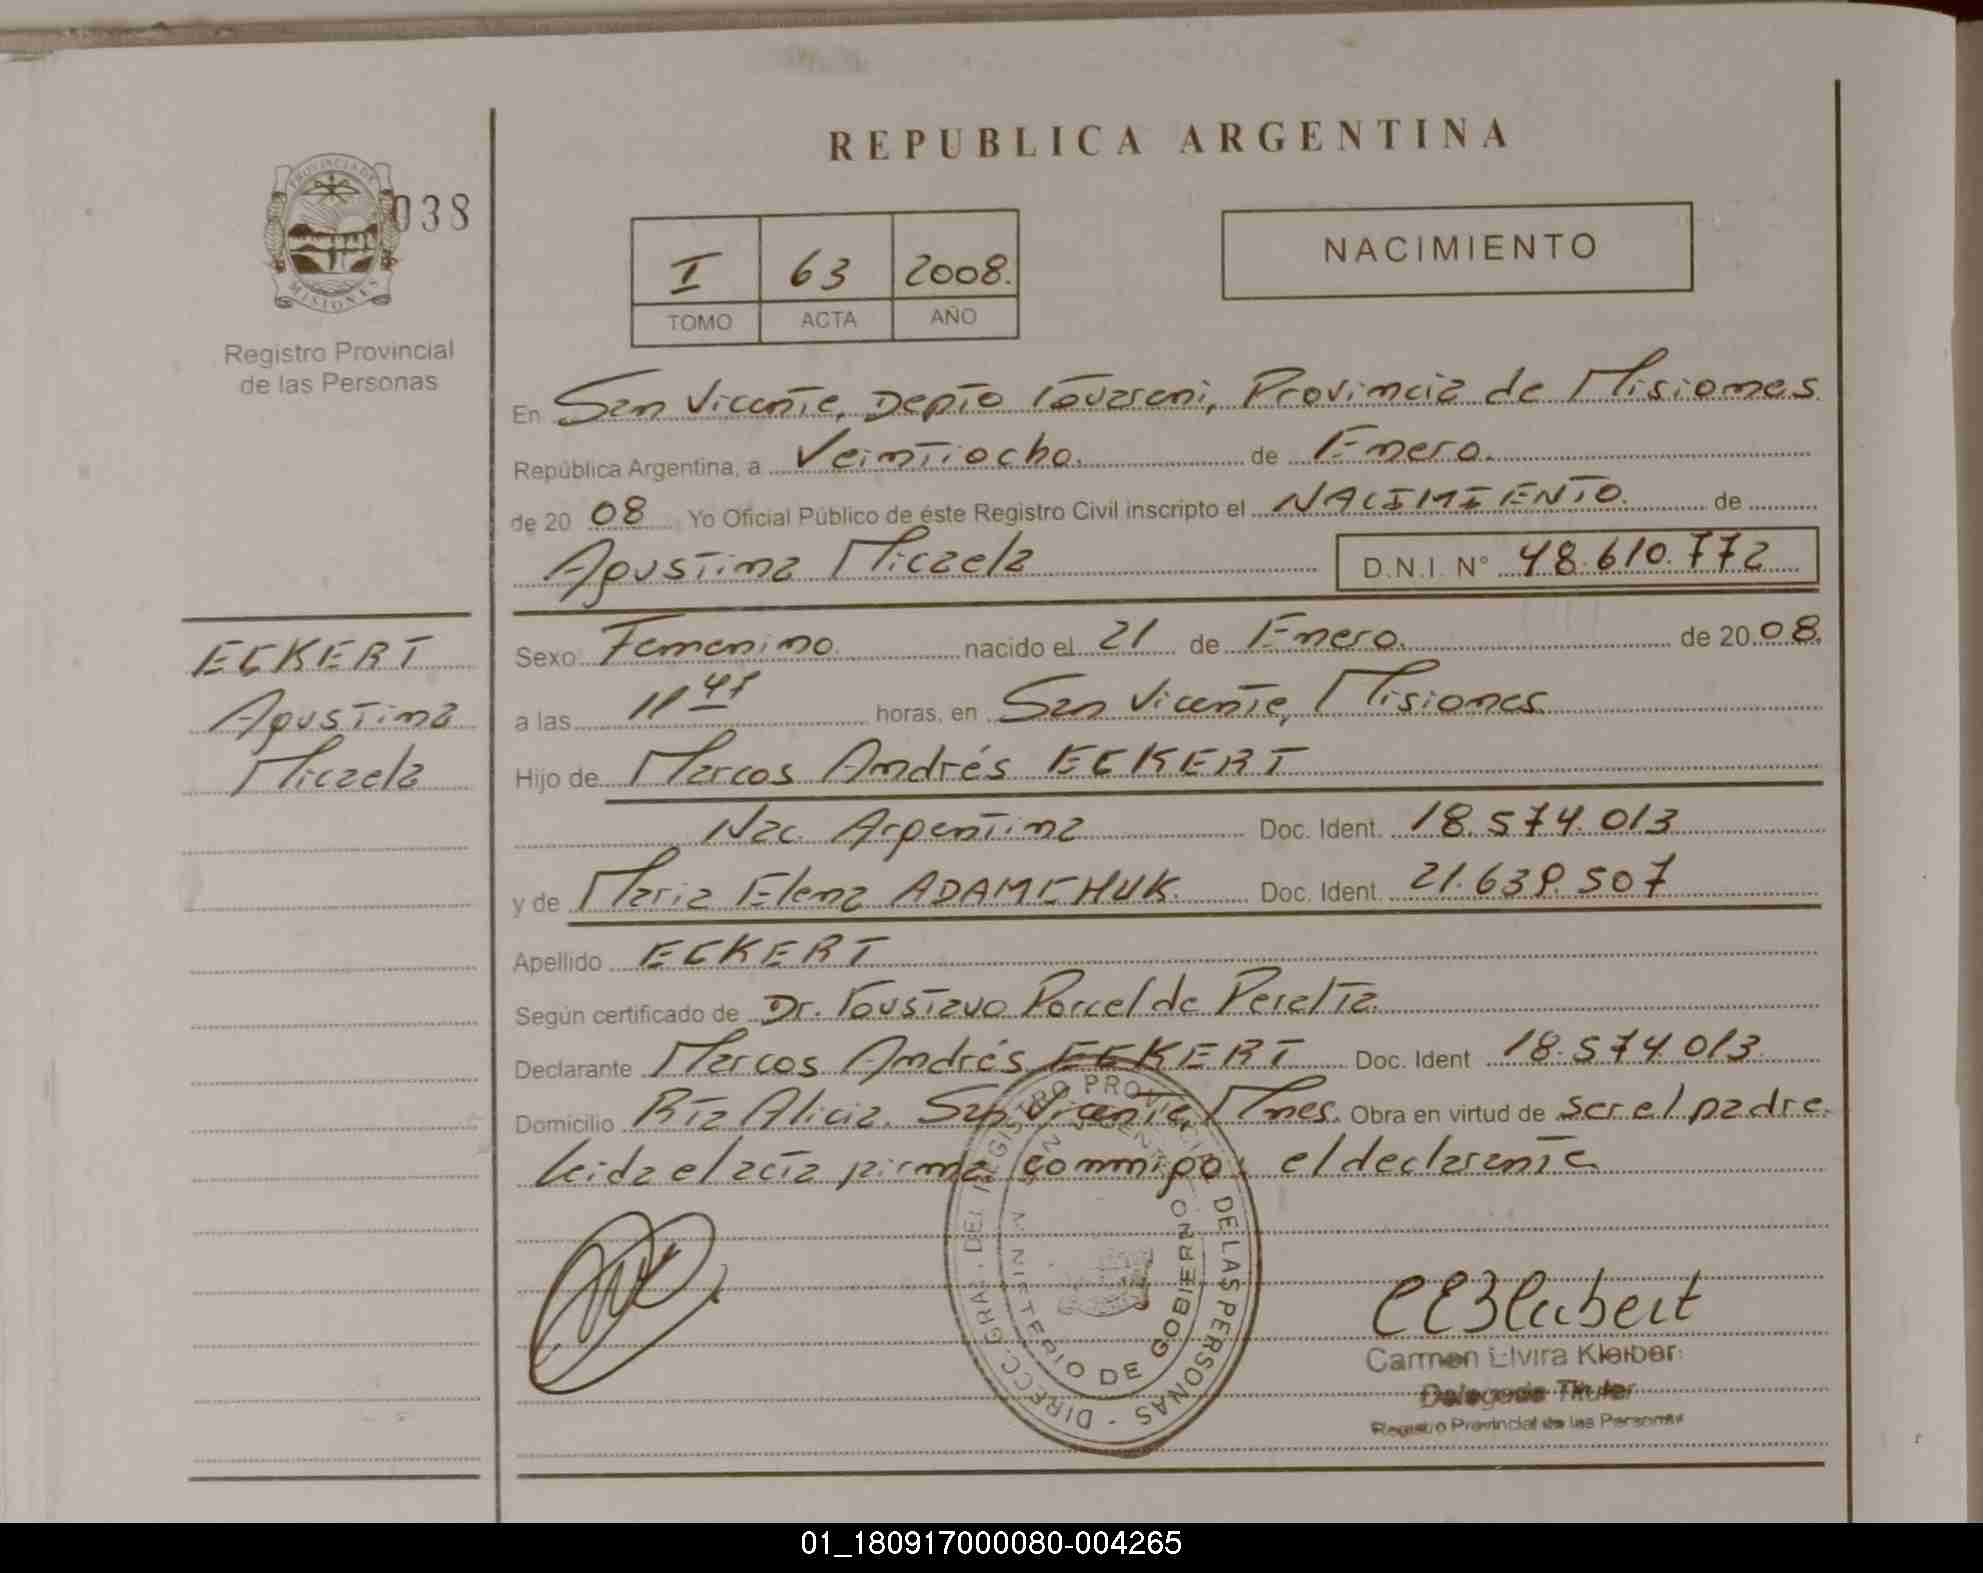 REPUBLICA ARGENTINA
PROVINCIA DE
MISIONES
038
Registro Provincial
de las Personas
I 63 2008.
TOMO ACTA AÑO
NACIMIENTO
En San Vicente, Depto Guarani, Provincia de Misiones
República Argentina, a Veintiocho. de Enero.
de 20 08 Yo Oficial Público de éste Registro Civil inscripto el NACIMIENTO. de
Agustina Micaela D.N.I. N° 48.610.772
ECKERT
Agustina
Micaela
Sexo Femenino. nacido el 21 de Enero. de 20 08.
a las 11 47 horas, en San Vicente, Misiones.
Hijo de Marcos Andrés ECKERT
Nac. Argentina Doc. Ident. 18.574.013
y de Maria Elena ADAMCHUK. Doc. Ident. 21.639.507
Apellido ECKERT
Según certificado de Dr. Gustavo Porcel de Peralta.
Declarante Marcos Andrés ECKERT Doc. Ident 18.574.013
Domicilio Rta Alicia. San Vicente, Mnes. Obra en virtud de ser el padre.
Leida el acta firma conmigo, el declarante
DIRECC. GRAL. DEL REGISTRO PROVINCIAL DE LAS PERSONAS
MINISTERIO DE GOBIERNO
Carmen Elvira Kleiber
Delegada Titular
Registro Provincial de las Personas
01_180917000080-004265